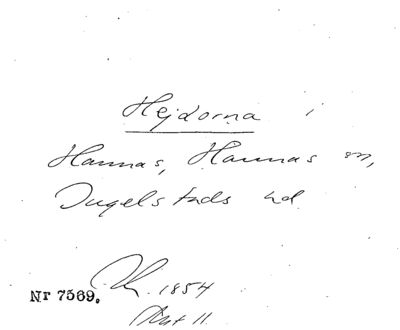 Hejdorna i
Hannas, Hannas sn,
Ingelstads hd
Nr 7569.
1854